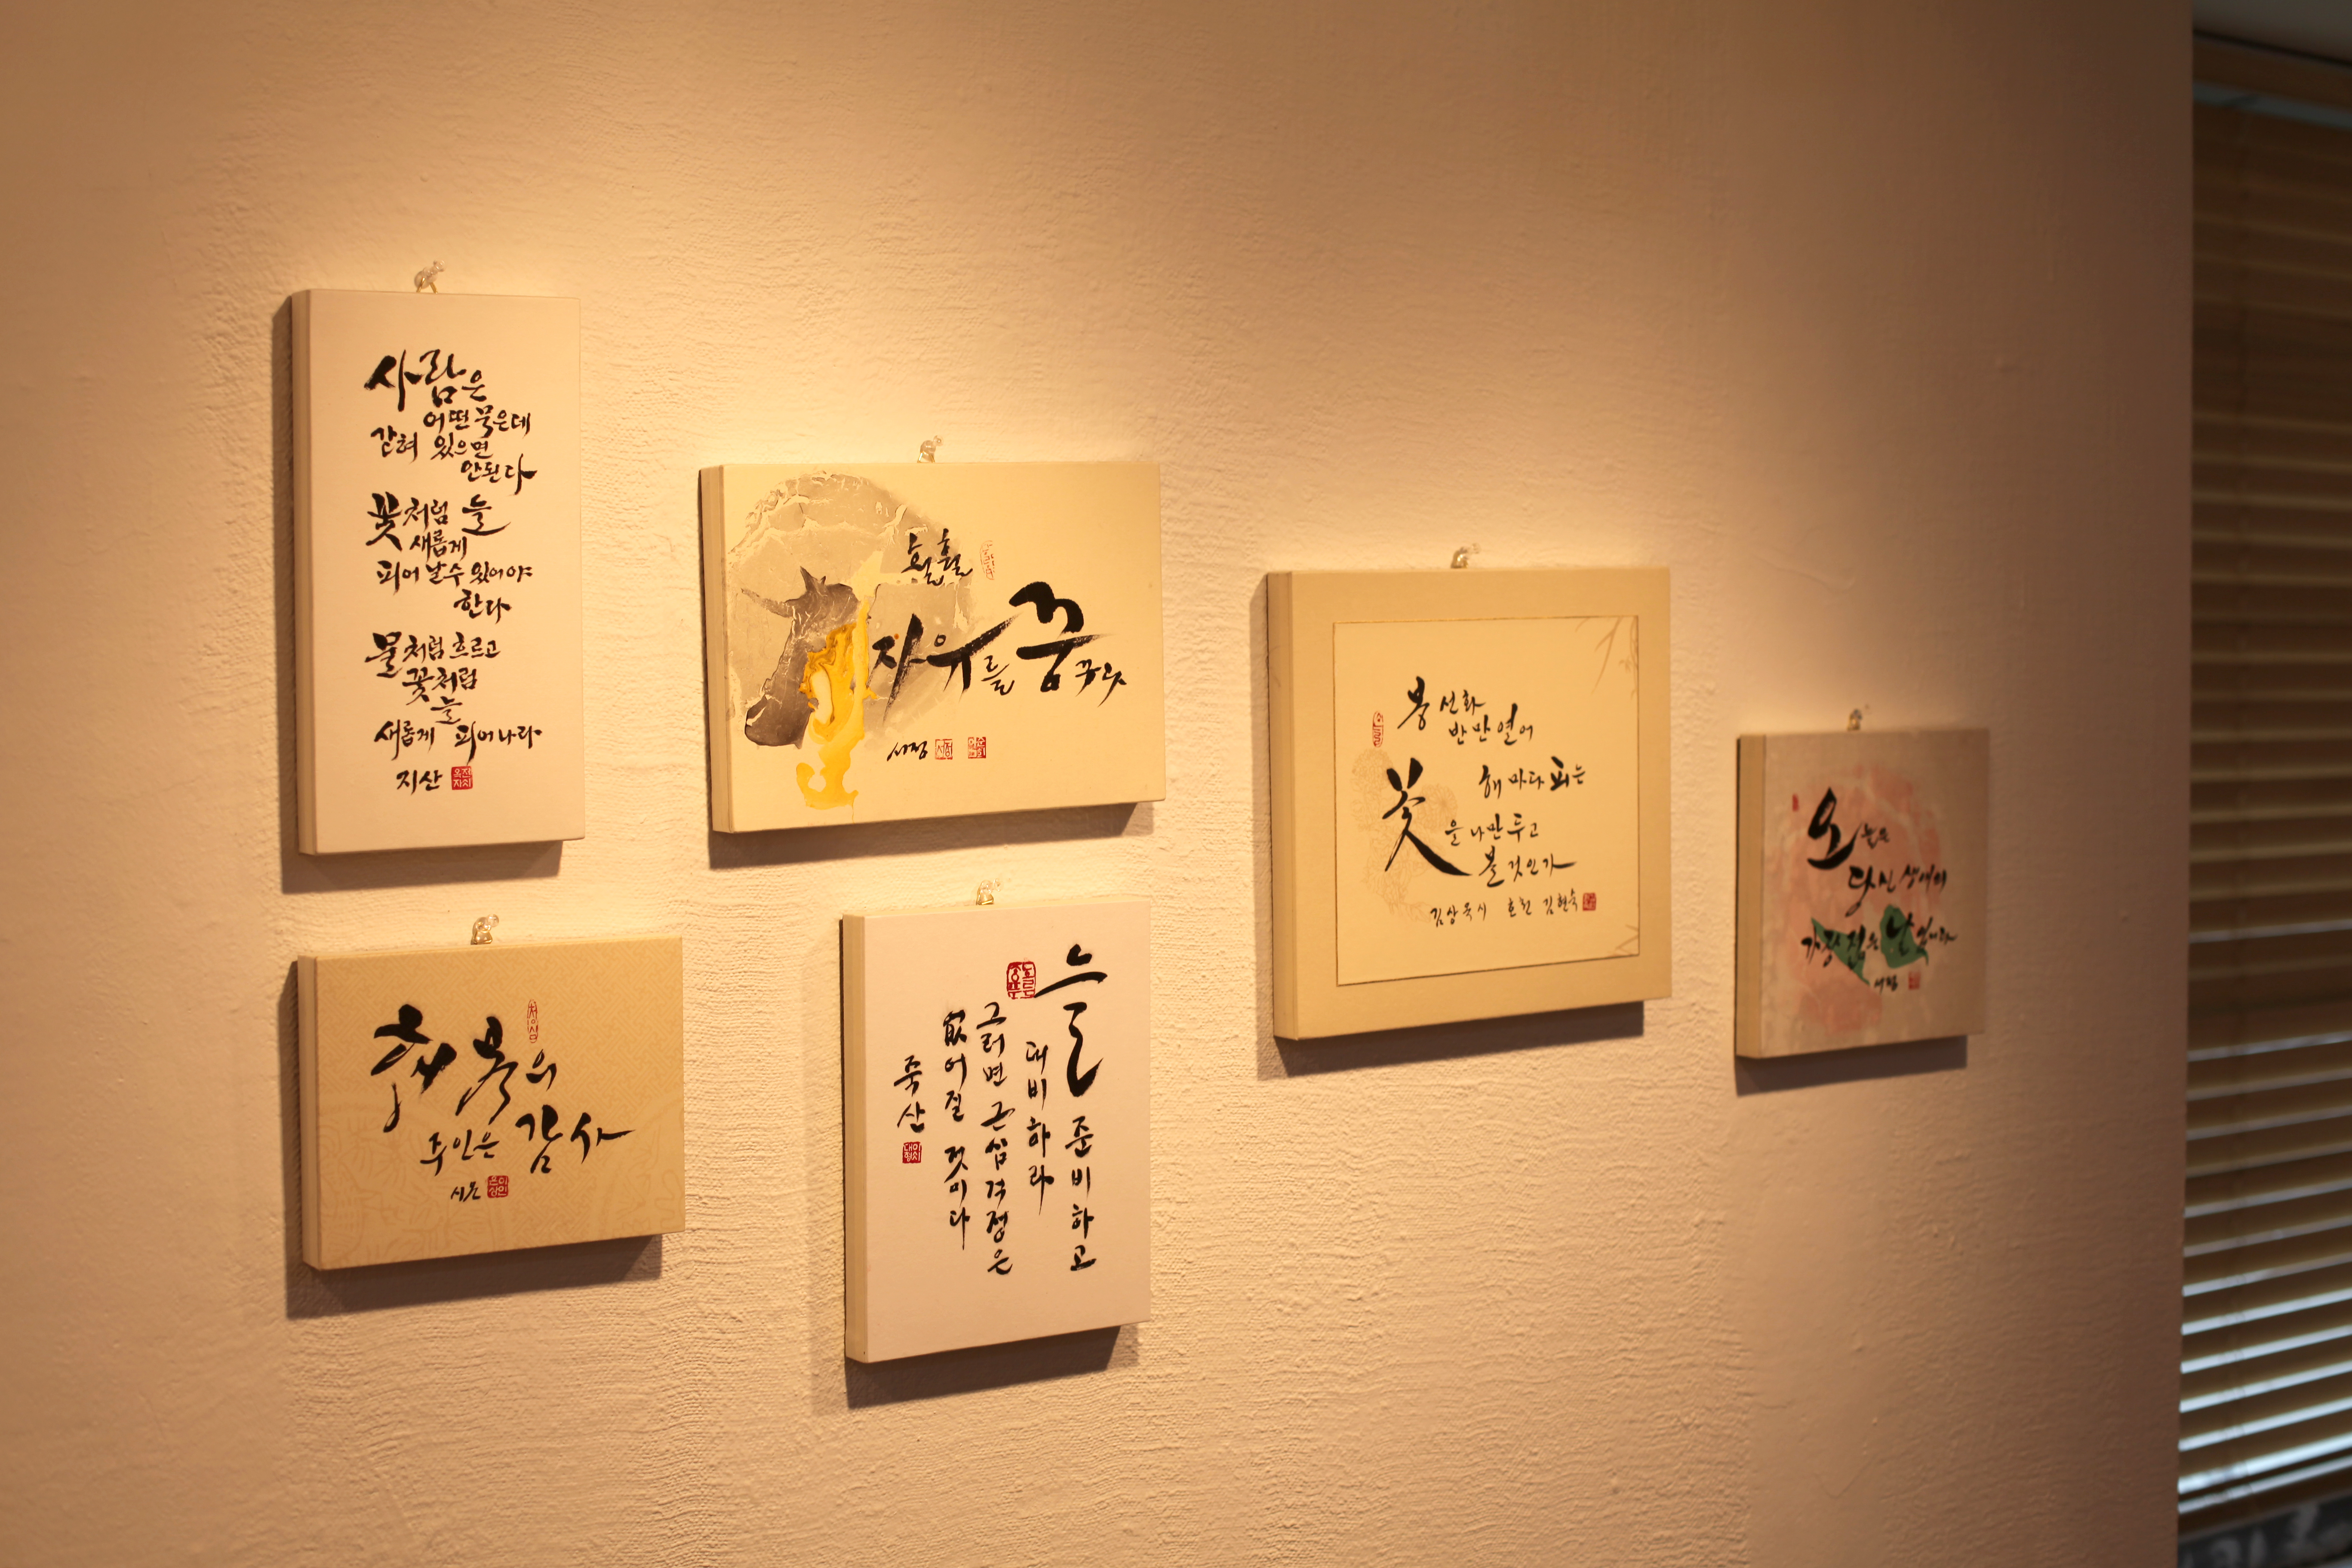 사람은
어떤 묵은데
갇혀 있으면
안된다
꽃처럼 늘
새롭게
피어 날수 있어야
한다
물처럼 흐르고
꽃처럼
늘
새롭게 피어나라
지산
훨훨
자유를 꿈꾸라
서정
서정
봉선화
반만 열어
해마다 피는
꽃을 나만 두고
볼 것인가
김상옥 시 효천 김현숙
오늘은
당신 생애의
가장 젊은 날입니다
행복의
주인은 감사
시온
청심
늘 준비하고
대비하라
그러면 근심 걱정은
없어질 것이다
죽산